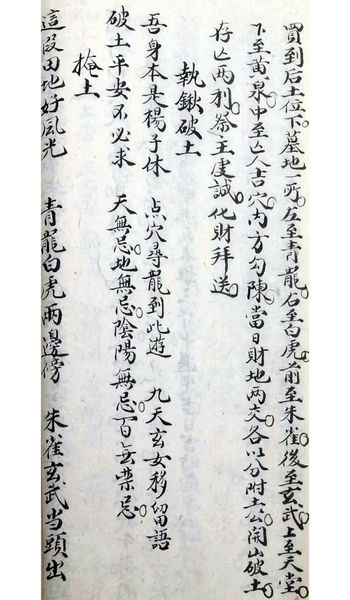 買到后土位下墓地一所左至青龍右至白虎前至朱雀後至玄武上至天堂
下至黃泉中至亡人吉穴内方勾陳當日財地兩交各以分附土公開山破土
存亡兩利齋主虔誠化財拜送
執鍬破土
吾身本是楊子休 点穴尋龍到此遊 九天玄女移留語
破土平安不必求 天無忌地無忌陰陽無忌百無禁忌
掩土
這段田地好風光 青龍白虎兩邊傍 朱雀玄武当頭出